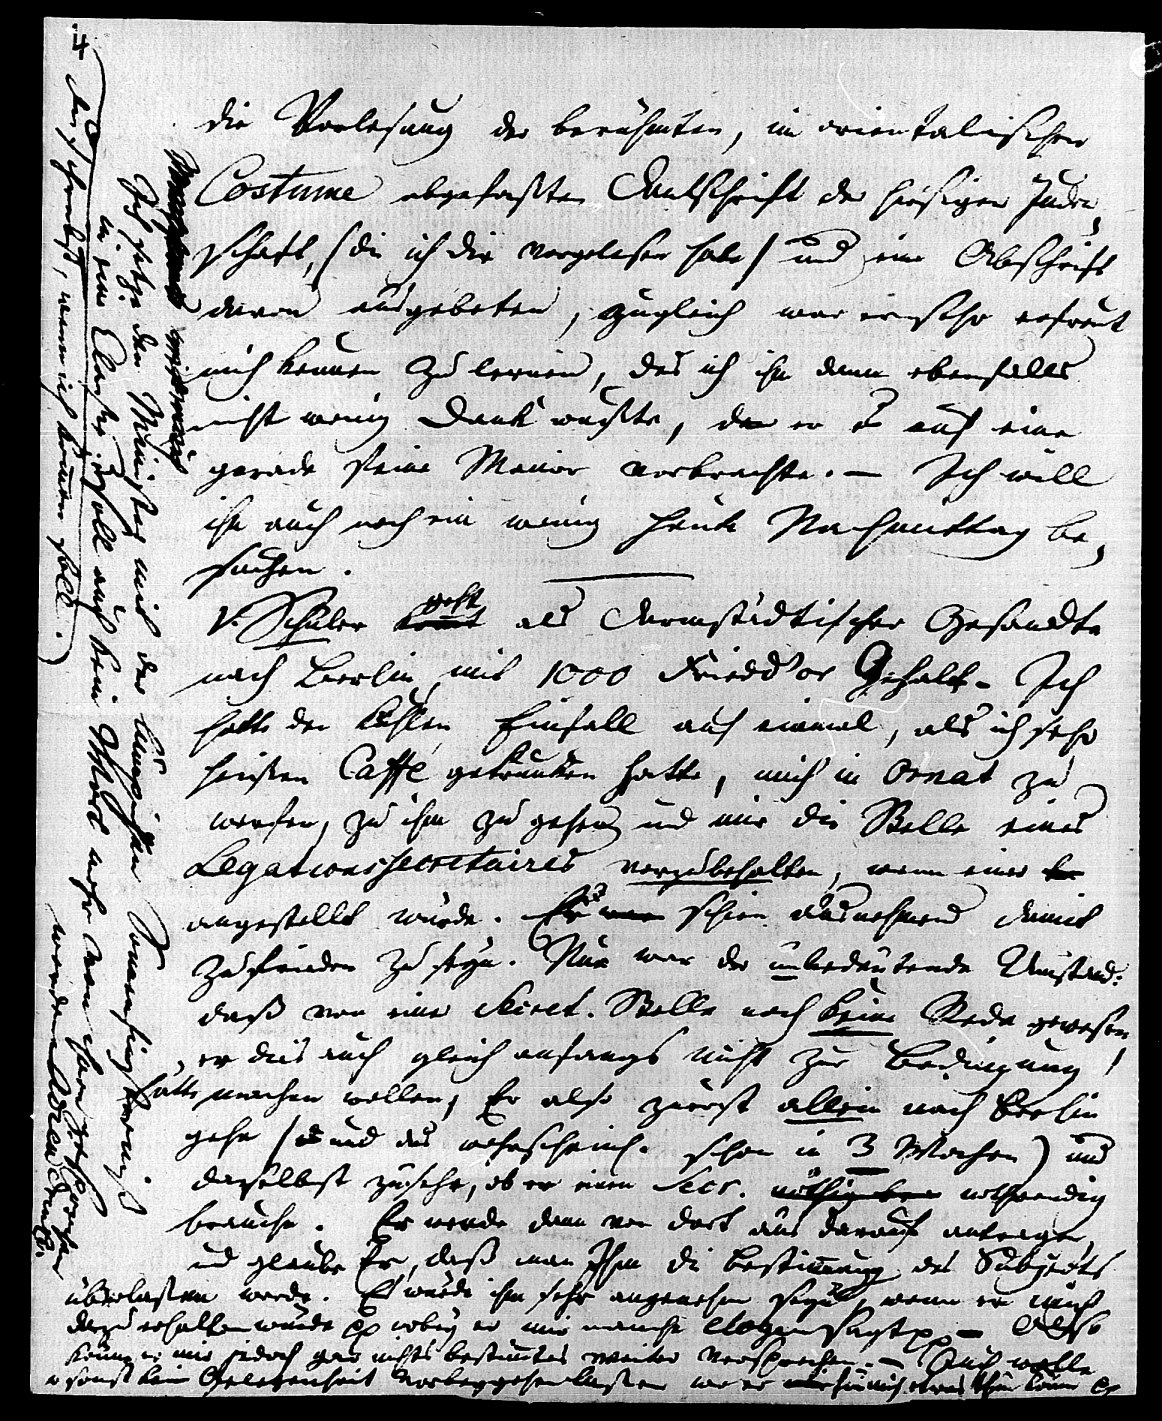 4
die Vorlesung der berühmten, im orientalischen
Costume abgefaßten Denkschrift der hiesigen Juden,
schaft, (die ich dir vorgelesen habe) und eine Abschrift
davon ausgebeten, zugleich war er sehr erfreut
mich kennen zu lernen, das ich ihm dann ebenfalls
nicht wenig Dank wußte, da er es auf eine
gerade feine Manier vorbrachte. — Ich will
ihn auch noch ein wenig heute Nachmittag be,
suchen.
v. Schüler geht als Darmstädtischer Gesandte
nach Berlin mit 1000 Friedd'or Gehalt. Ich
hatte den kühlen Einfall auf einmal, als ich sehr
heißen Caffé getrunken hatte, mich in Ornat zu
werfen, zu ihm zu gehen und mir die Stelle eines
Legationssecretaires vorzubehalten, wenn einer
angestellt würde. Er schien ausnehmend damit
zufrieden zu seyn. Nur war der unbedeutende Umstand:
daß von einer Secret. Stelle noch keine Rede gewesen,
er dies auch gleich anfangs nicht zur Bedingung
hätte machen wollen, Er also zuerst allein nach Berlin
gehe (und das wahrscheinl. schon in 3 Wochen) und
daselbst zusehe, ob er einen Secr. nothwendig
brauche. Er werde dann von dort aus darauf antragen
und glaube Er, daß man Ihm die Bestimmung des Subjects
überlassen werde. Es würde ihm sehr angenehm seyn, wenn er mich
dazu erhalten würde pp wobey er mir manche elogen sagte pp — Also
könne er mir jedoch gar nichts bestimmtes weiter versprechen. — Auch wolle
er sonst keine Gelegenheit vorbeygehen lassen wo er für mich etwas thun könne pp
Ich setze den Minister mit der
in eine Classe. Soll auch kein Wort mehr von ihm gesprochen
werden
schreibst, wenn ich kommen soll.)